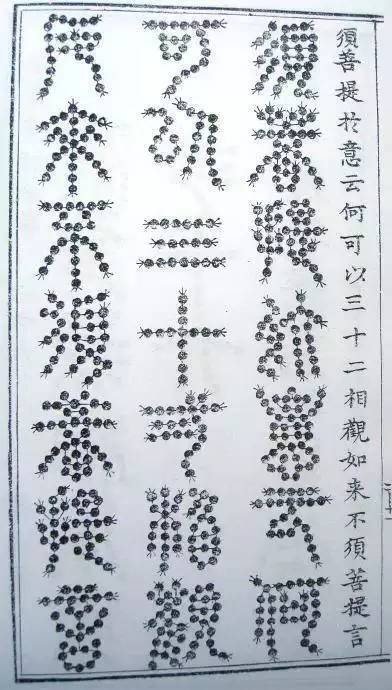 須菩提於意云何可以三十二相觀如来不須菩提言
須菩提於意云何
可以三十二相觀
如来不須菩提言